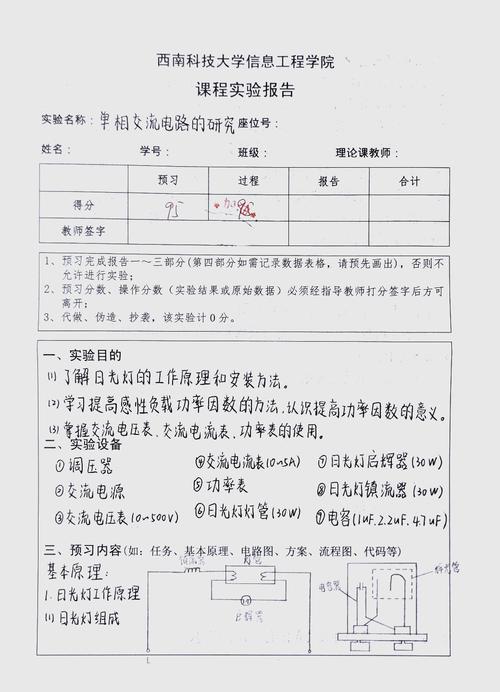 西南科技大学信息工程学院
课程实验报告
实验名称：单相交流电路的研究 座位号：
姓名： 学号： 班级： 理论课教师：
预习 过程 报告 合计
得分 95
教师签字
1、预习完成报告一～三部分(第四部分如需记录数据表格，请预先画出)，否则不
允许进行实验；
2、预习分数、操作分数（实验结果或原始数据）必须经指导教师打分签字后方可
离开；
3、代做、伪造、抄袭，该实验计0分。
一、实验目的
(1) 了解日光灯的工作原理和安装方法。
(2) 学习提高感性负载功率因数的方法，认识提高功率因数的意义。
(3) 掌握交流电压表、交流电流表、功率表的使用。
二、实验设备
①调压器 ④交流电流表(0~5A) ⑦日光灯启辉器(30W)
②交流电源 ⑤功率表 ⑧日光灯镇流器(30W)
③交流电压表(0~500V) ⑥日光灯灯管(30W) ⑦电容(1uF、2.2uF、4.7uF)
三、预习内容(如：任务、基本原理、电路图、方案、流程图、代码等)
基本原理：
1.日光灯工作原理
(1)日光灯组成
镇流器 灯管
启辉器
L